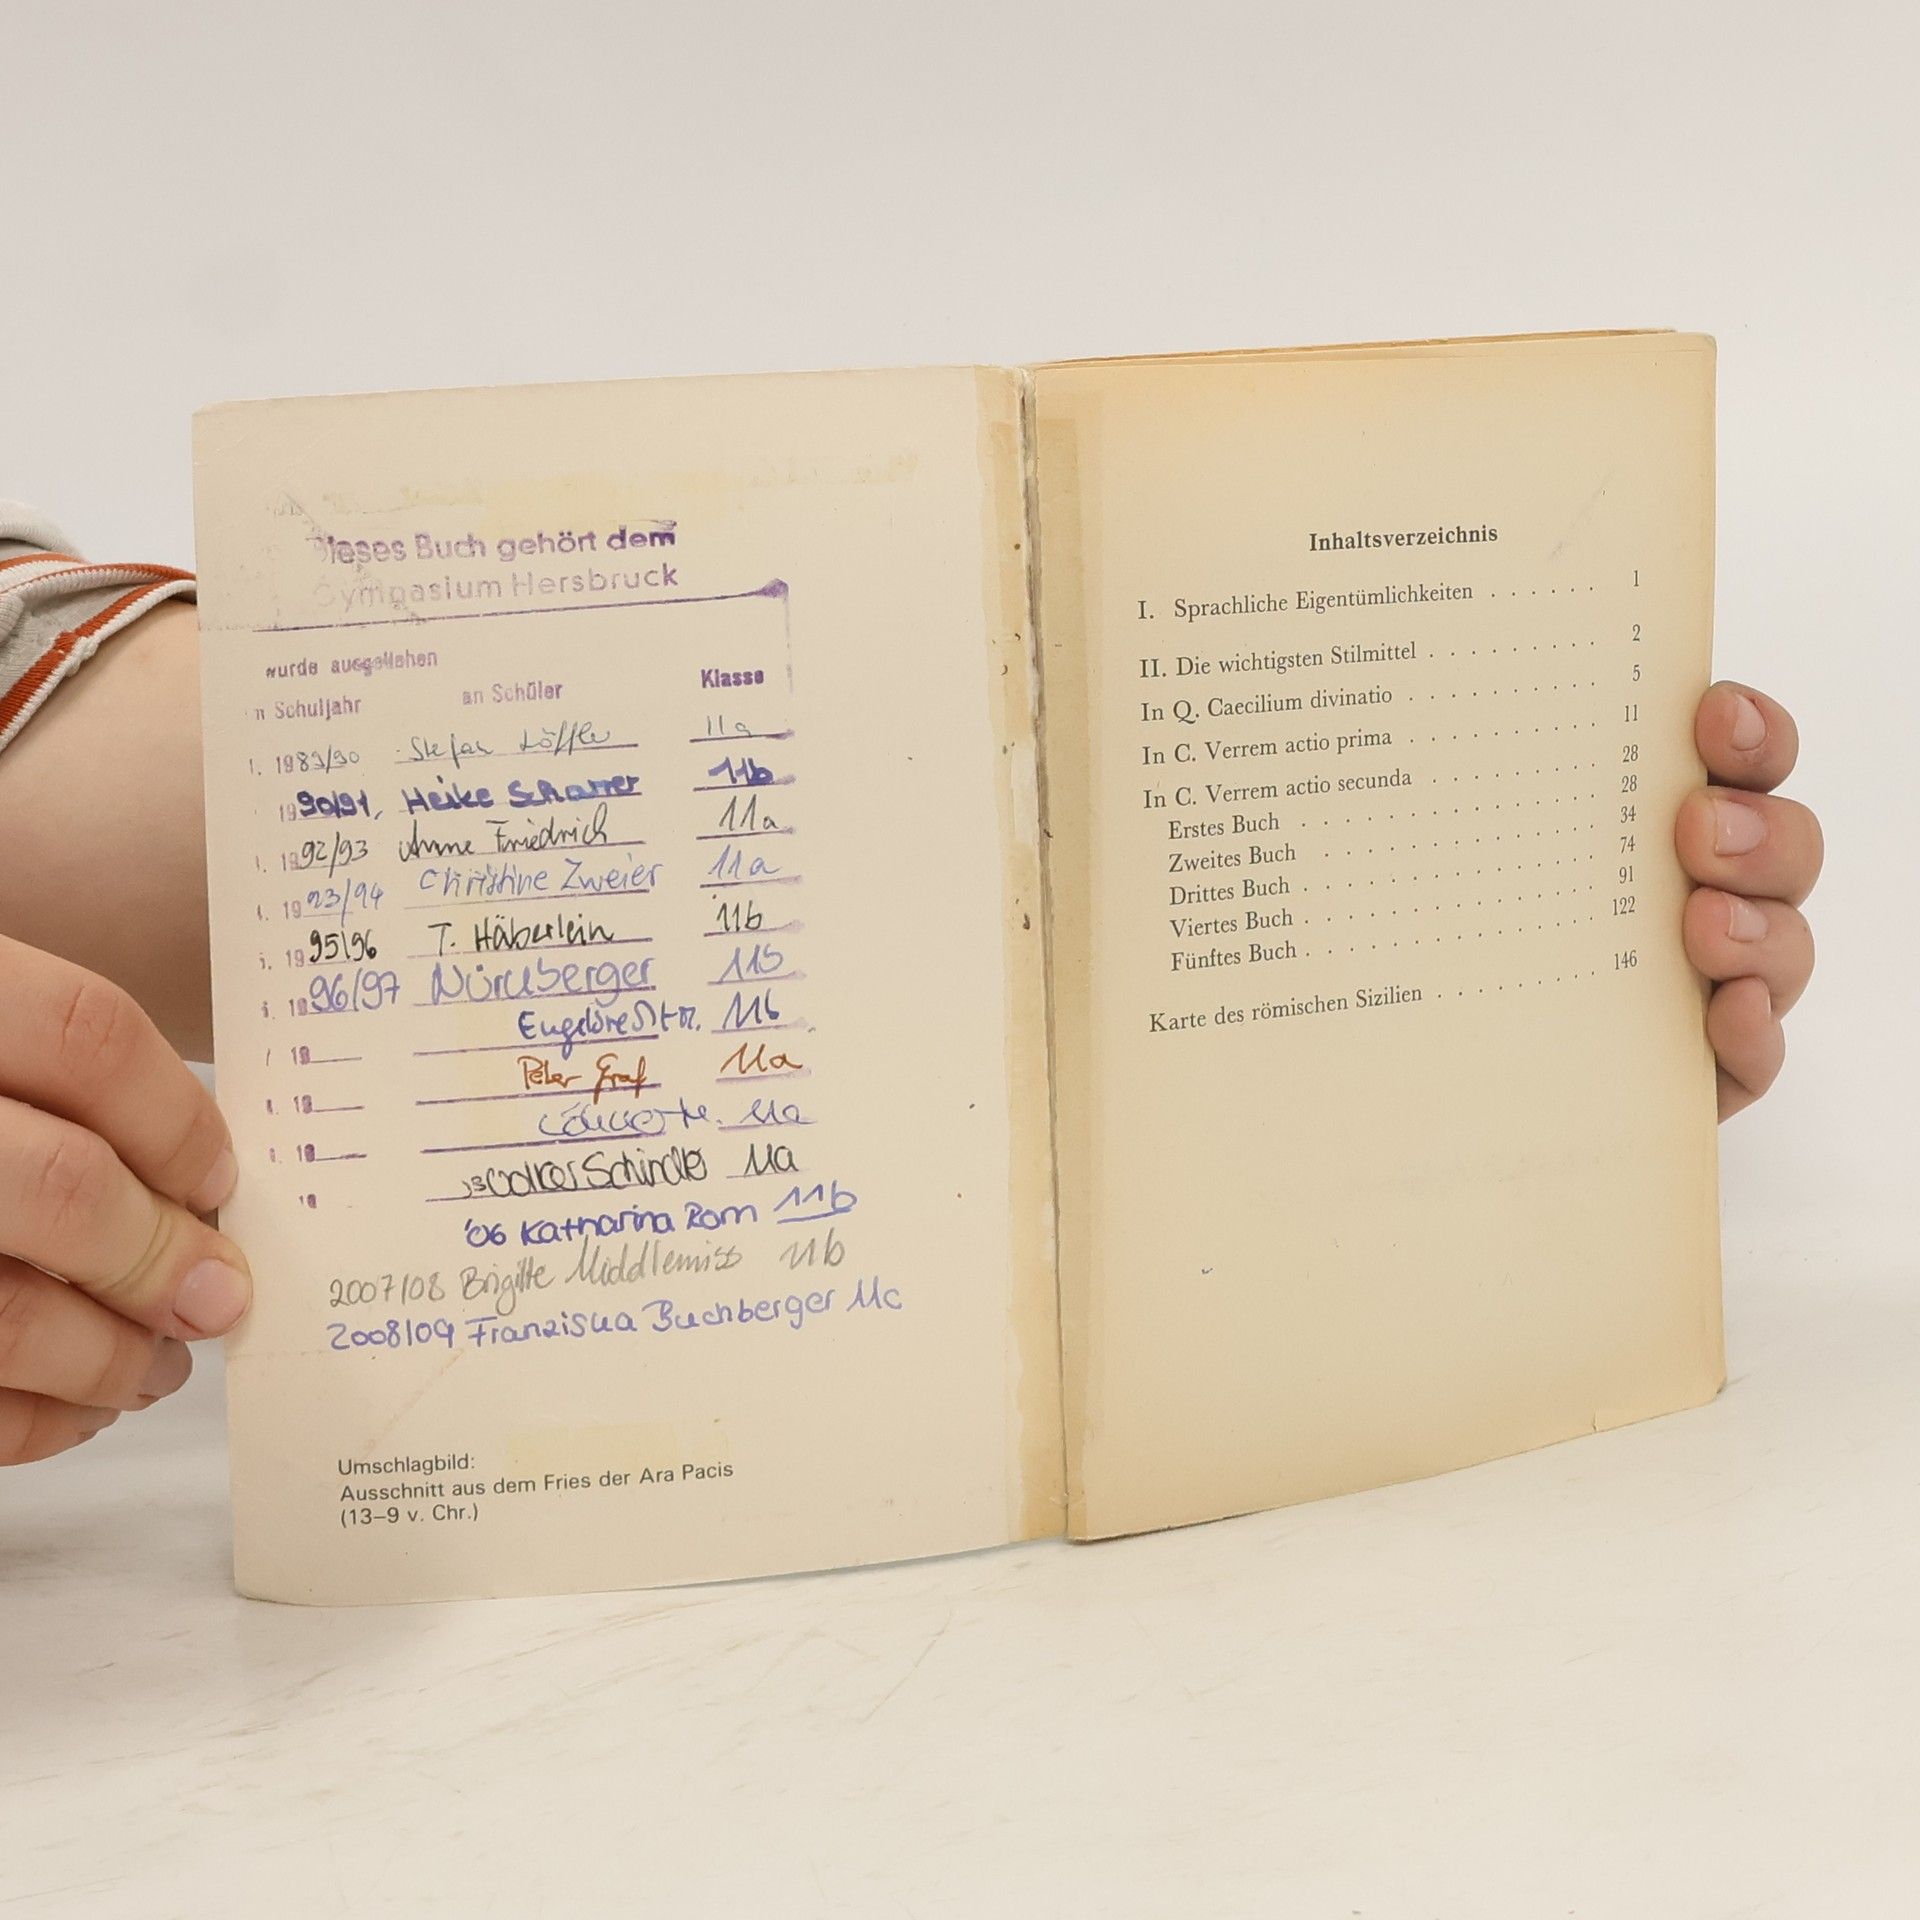 Dieses Buch gehört dem
Gymnasium Hersbruck
wurde ausgeliehen
Schuljahr an Schüler Klasse
1989/90 Stefan Löffler 11a
1990/91, Heike Scharrer 11b
1992/93 Anne Friedrich 11a
1993/94 Christine Zweier 11a
1995/96 T. Häberlein 11b
1996/97 Nürnberger 11b
19 11b
19 Peter Graf 11a
19 11a
19 Schindler 11a
'06 Katharina Rom 11b
2007/08 Brigitte Middlemiss 11b
2008/09 Franziska Buchberger 11c
Umschlagbild:
Ausschnitt aus dem Fries der Ara Pacis
(13–9 v. Chr.)
Inhaltsverzeichnis
I. Sprachliche Eigentümlichkeiten . . . . . . 1
II. Die wichtigsten Stilmittel . . . . . . . . . 2
In Q. Caecilium divinatio . . . . . . . . . . 5
In C. Verrem actio prima . . . . . . . . . . 11
In C. Verrem actio secunda . . . . . . . . . 28
Erstes Buch . . . . . . . . . . . . . 28
Zweites Buch . . . . . . . . . . . . 34
Drittes Buch . . . . . . . . . . . . . 74
Viertes Buch . . . . . . . . . . . . . 91
Fünftes Buch . . . . . . . . . . . . . 122
Karte des römischen Sizilien . . . . . . . . 146